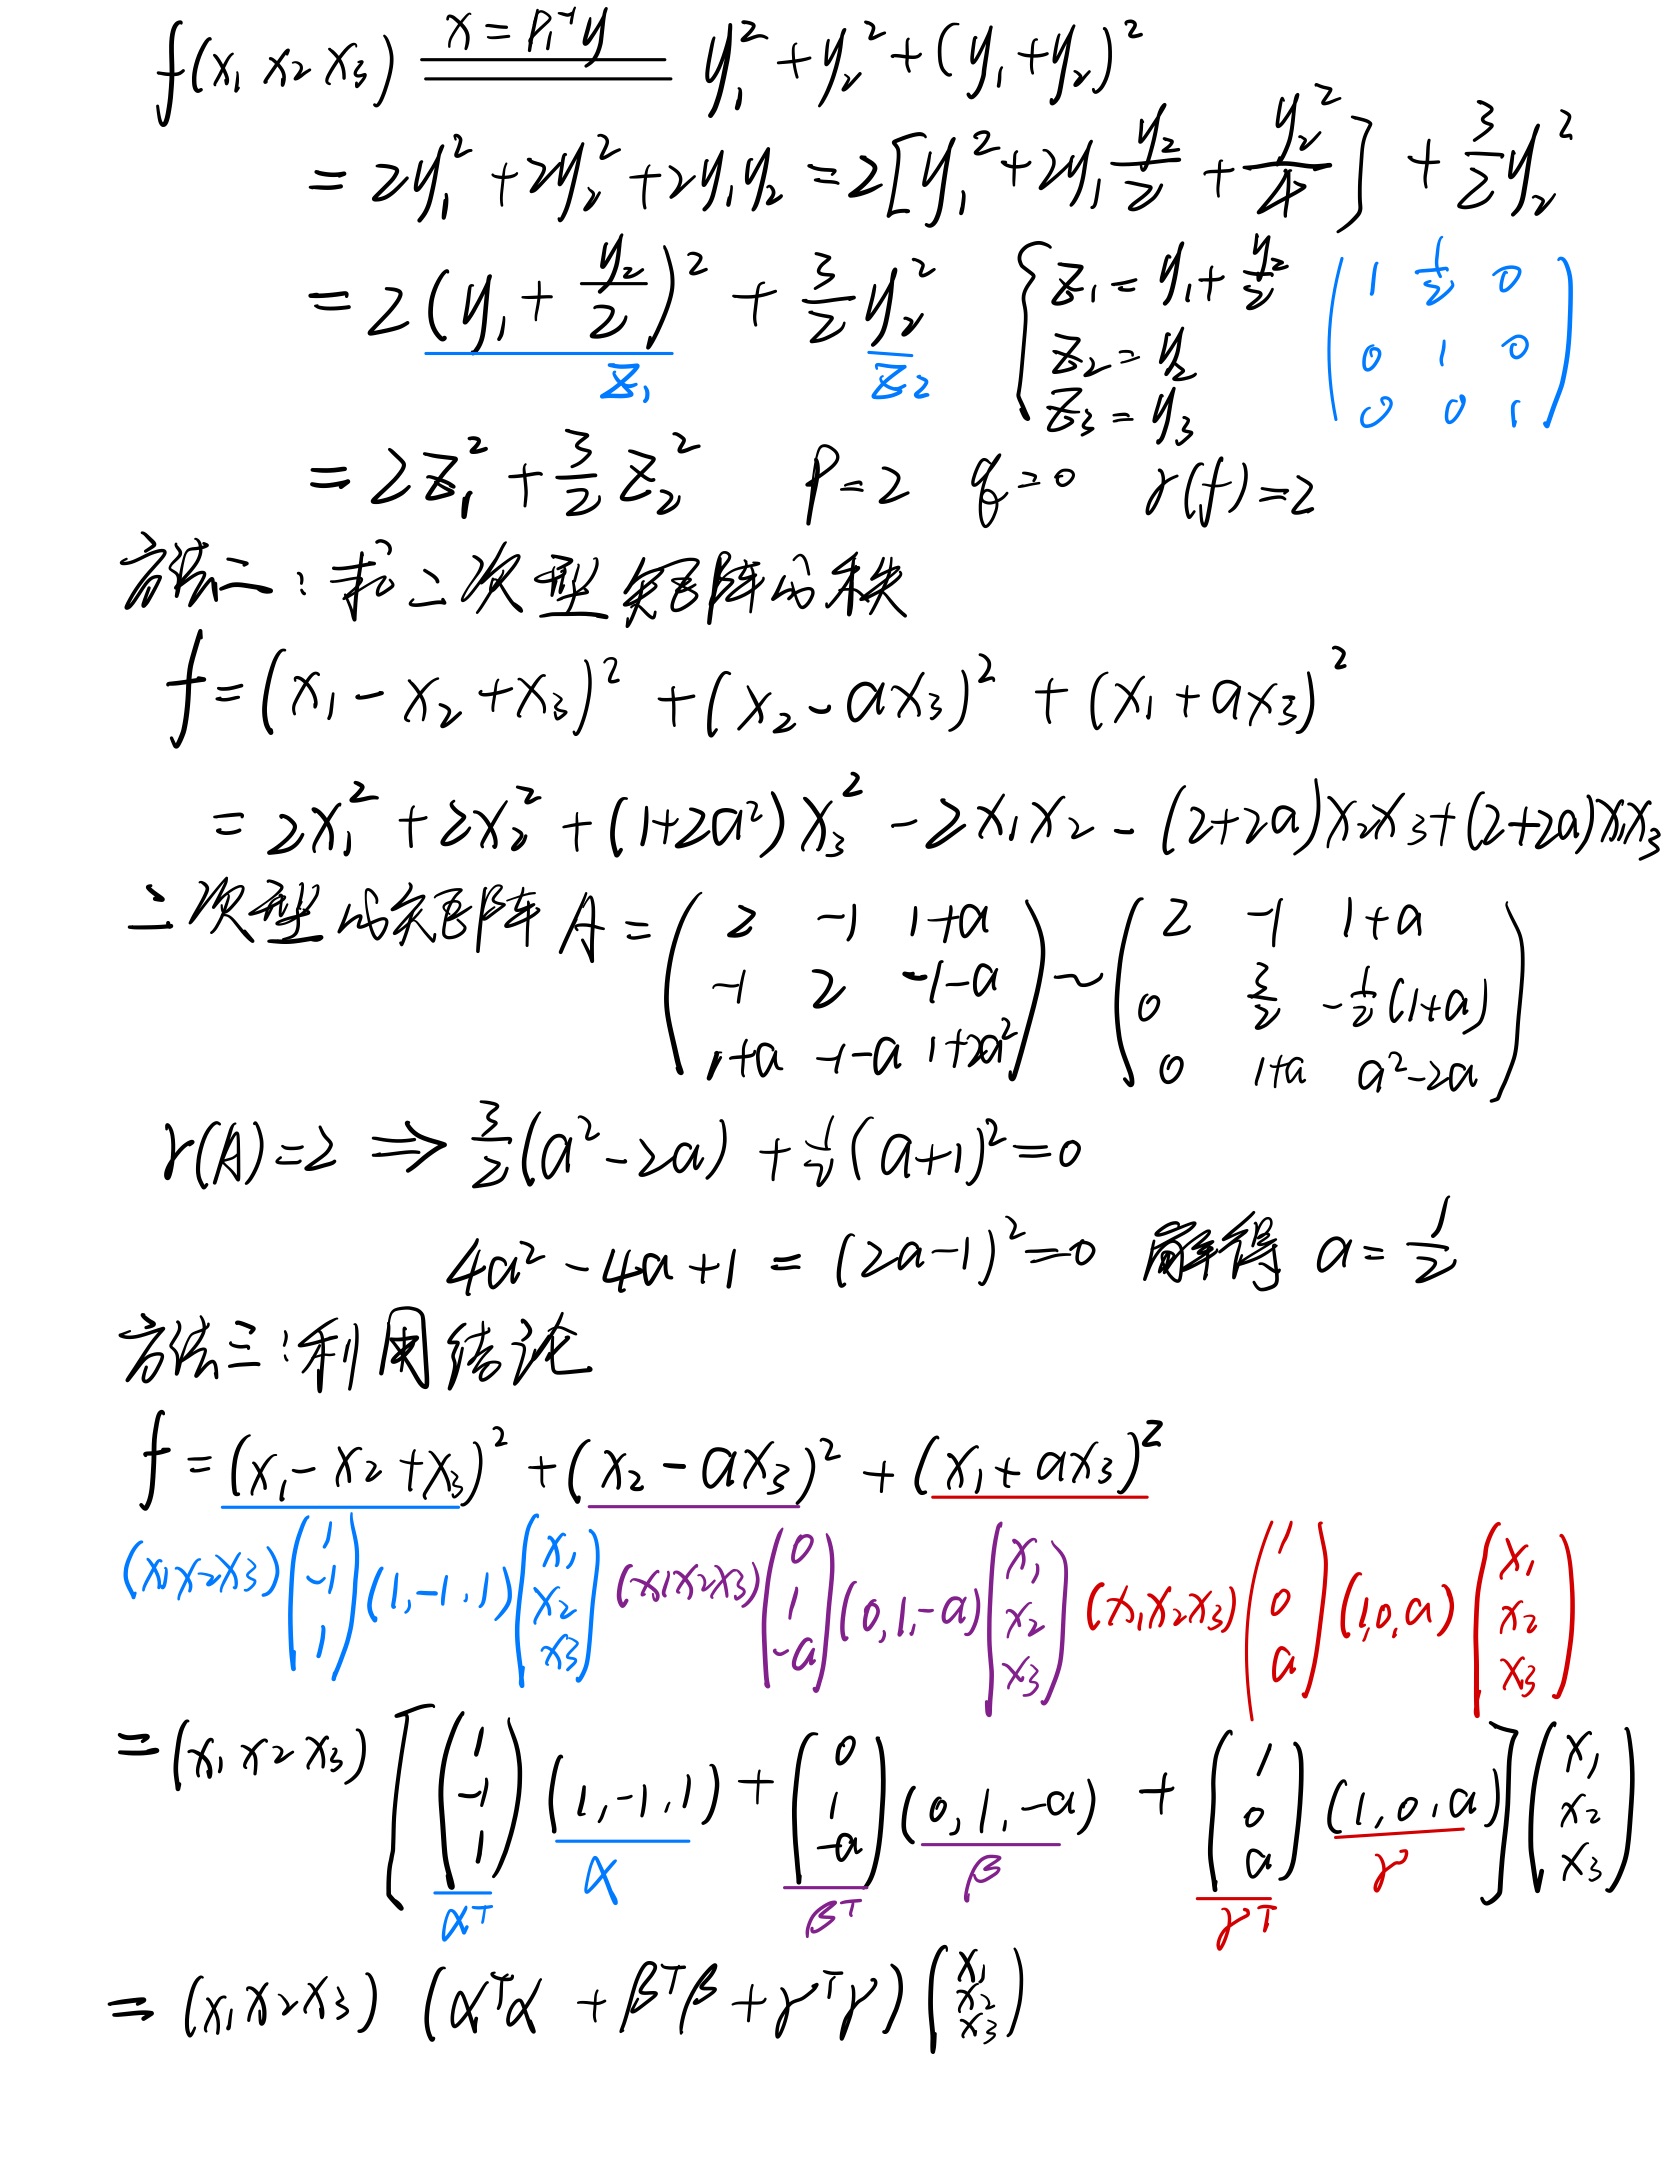 f(x₁ x₂ x₃) ==(x = P₁⁻¹y)== y₁² + y₂² + (y₁ + y₂)²
= 2y₁² + 2y₂² + 2y₁y₂ = 2[y₁² + 2y₁ y₂/2 + y₂²/4] + 3/2 y₂²
= 2(y₁ + y₂/2)² + 3/2 y₂² { z₁ = y₁ + y₂/2 ( 1 1/2 0
z₁ z₂ z₂ = y₂ 0 1 0
z₃ = y₃ 0 0 1 )
= 2z₁² + 3/2 z₂² p = 2 q = 0 r(f) = 2
方法二：求二次型矩阵的秩
f = (x₁ - x₂ + x₃)² + (x₂ - ax₃)² + (x₁ + ax₃)²
= 2x₁² + 2x₂² + (1+2a²)x₃² - 2x₁x₂ - (2+2a)x₂x₃ + (2+2a)x₁x₃
二次型的矩阵 A = ( 2 -1 1+a ) ~ ( 2 -1 1+a )
( -1 2 -1-a ) ( 0 3/2 -1/2(1+a) )
( 1+a -1-a 1+2a² ) ( 0 1+a a²-2a )
r(A) = 2 ⇒ 3/2(a² - 2a) + 1/2(a+1)² = 0
4a² - 4a + 1 = (2a-1)² = 0 解得 a = 1/2
方法三：利用结论
f = (x₁ - x₂ + x₃)² + (x₂ - ax₃)² + (x₁ + ax₃)²
(x₁x₂x₃)(1 -1 1)(1,-1,1)(x₁ x₂ x₃) (x₁x₂x₃)(0 1 -a)(0,1,-a)(x₁ x₂ x₃) (x₁x₂x₃)(1 0 a)(1,0,a)(x₁ x₂ x₃)
= (x₁ x₂ x₃)[(1 -1 1)(1,-1,1) + (0 1 -a)(0,1,-a) + (1 0 a)(1,0,a)](x₁ x₂ x₃)
αᵀ α βᵀ β γᵀ γ
= (x₁x₂x₃)(αᵀα + βᵀβ + γᵀγ)(x₁ x₂ x₃)